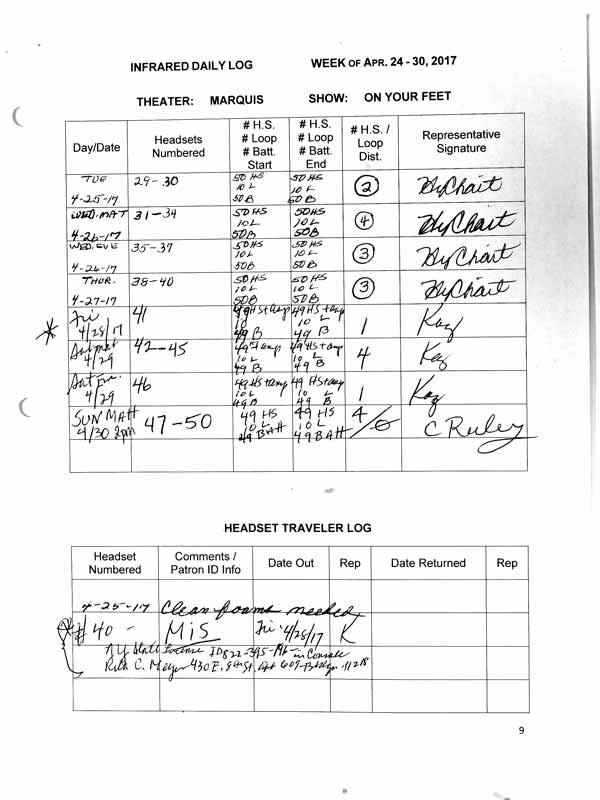 INFRARED DAILY LOG WEEK OF APR. 24 - 30, 2017
THEATER: MARQUIS SHOW: ON YOUR FEET
Day/Date Headsets Numbered # H.S. # Loop # Batt. Start # H.S. # Loop # Batt. End # H.S. / Loop Dist. Representative Signature
TUE 4-25-17 29-30 50 HS 10 L 50 B 50 HS 10 L 50 B 2 HyChart
WED. MAT 4-26-17 31-34 50 HS 10 L 50 B 50 HS 10 L 50 B 4 HyChart
WED. EVE 4-26-17 35-37 50 HS 10 L 50 B 50 HS 10 L 50 B 3 HyChart
THUR. 4-27-17 38-40 50 HS 10 L 50 B 50 HS 10 L 50 B 3 HyChart
* Fri 4/28/17 41 49 HS+amp 10 49 B 49 HS+amp 10 L 49 B 1 Kay
Sat mat 4/29 42-45 49 10 L 49 B 49 HS+amp 10 L 49 B 4 Kay
Sat Eve. 4/29 46 49 HS+amp 10 L 49 B 49 HS+amp 10 L 49 B 1 Kay
SUN MATT 4/30 2pm 47-50 49 HS 10 L 49 BATT 49 HS 10 L 49 BATT 4/0 C Ruley
HEADSET TRAVELER LOG
Headset Numbered Comments / Patron ID Info Date Out Rep Date Returned Rep
4-25-17 Clean foams needed
#40 - MIS Fri 4/28/17 K
NY State License ID 822-395- in Console
Ruth C. Meyer 430 E. 9th St. Apt 607 11218
9